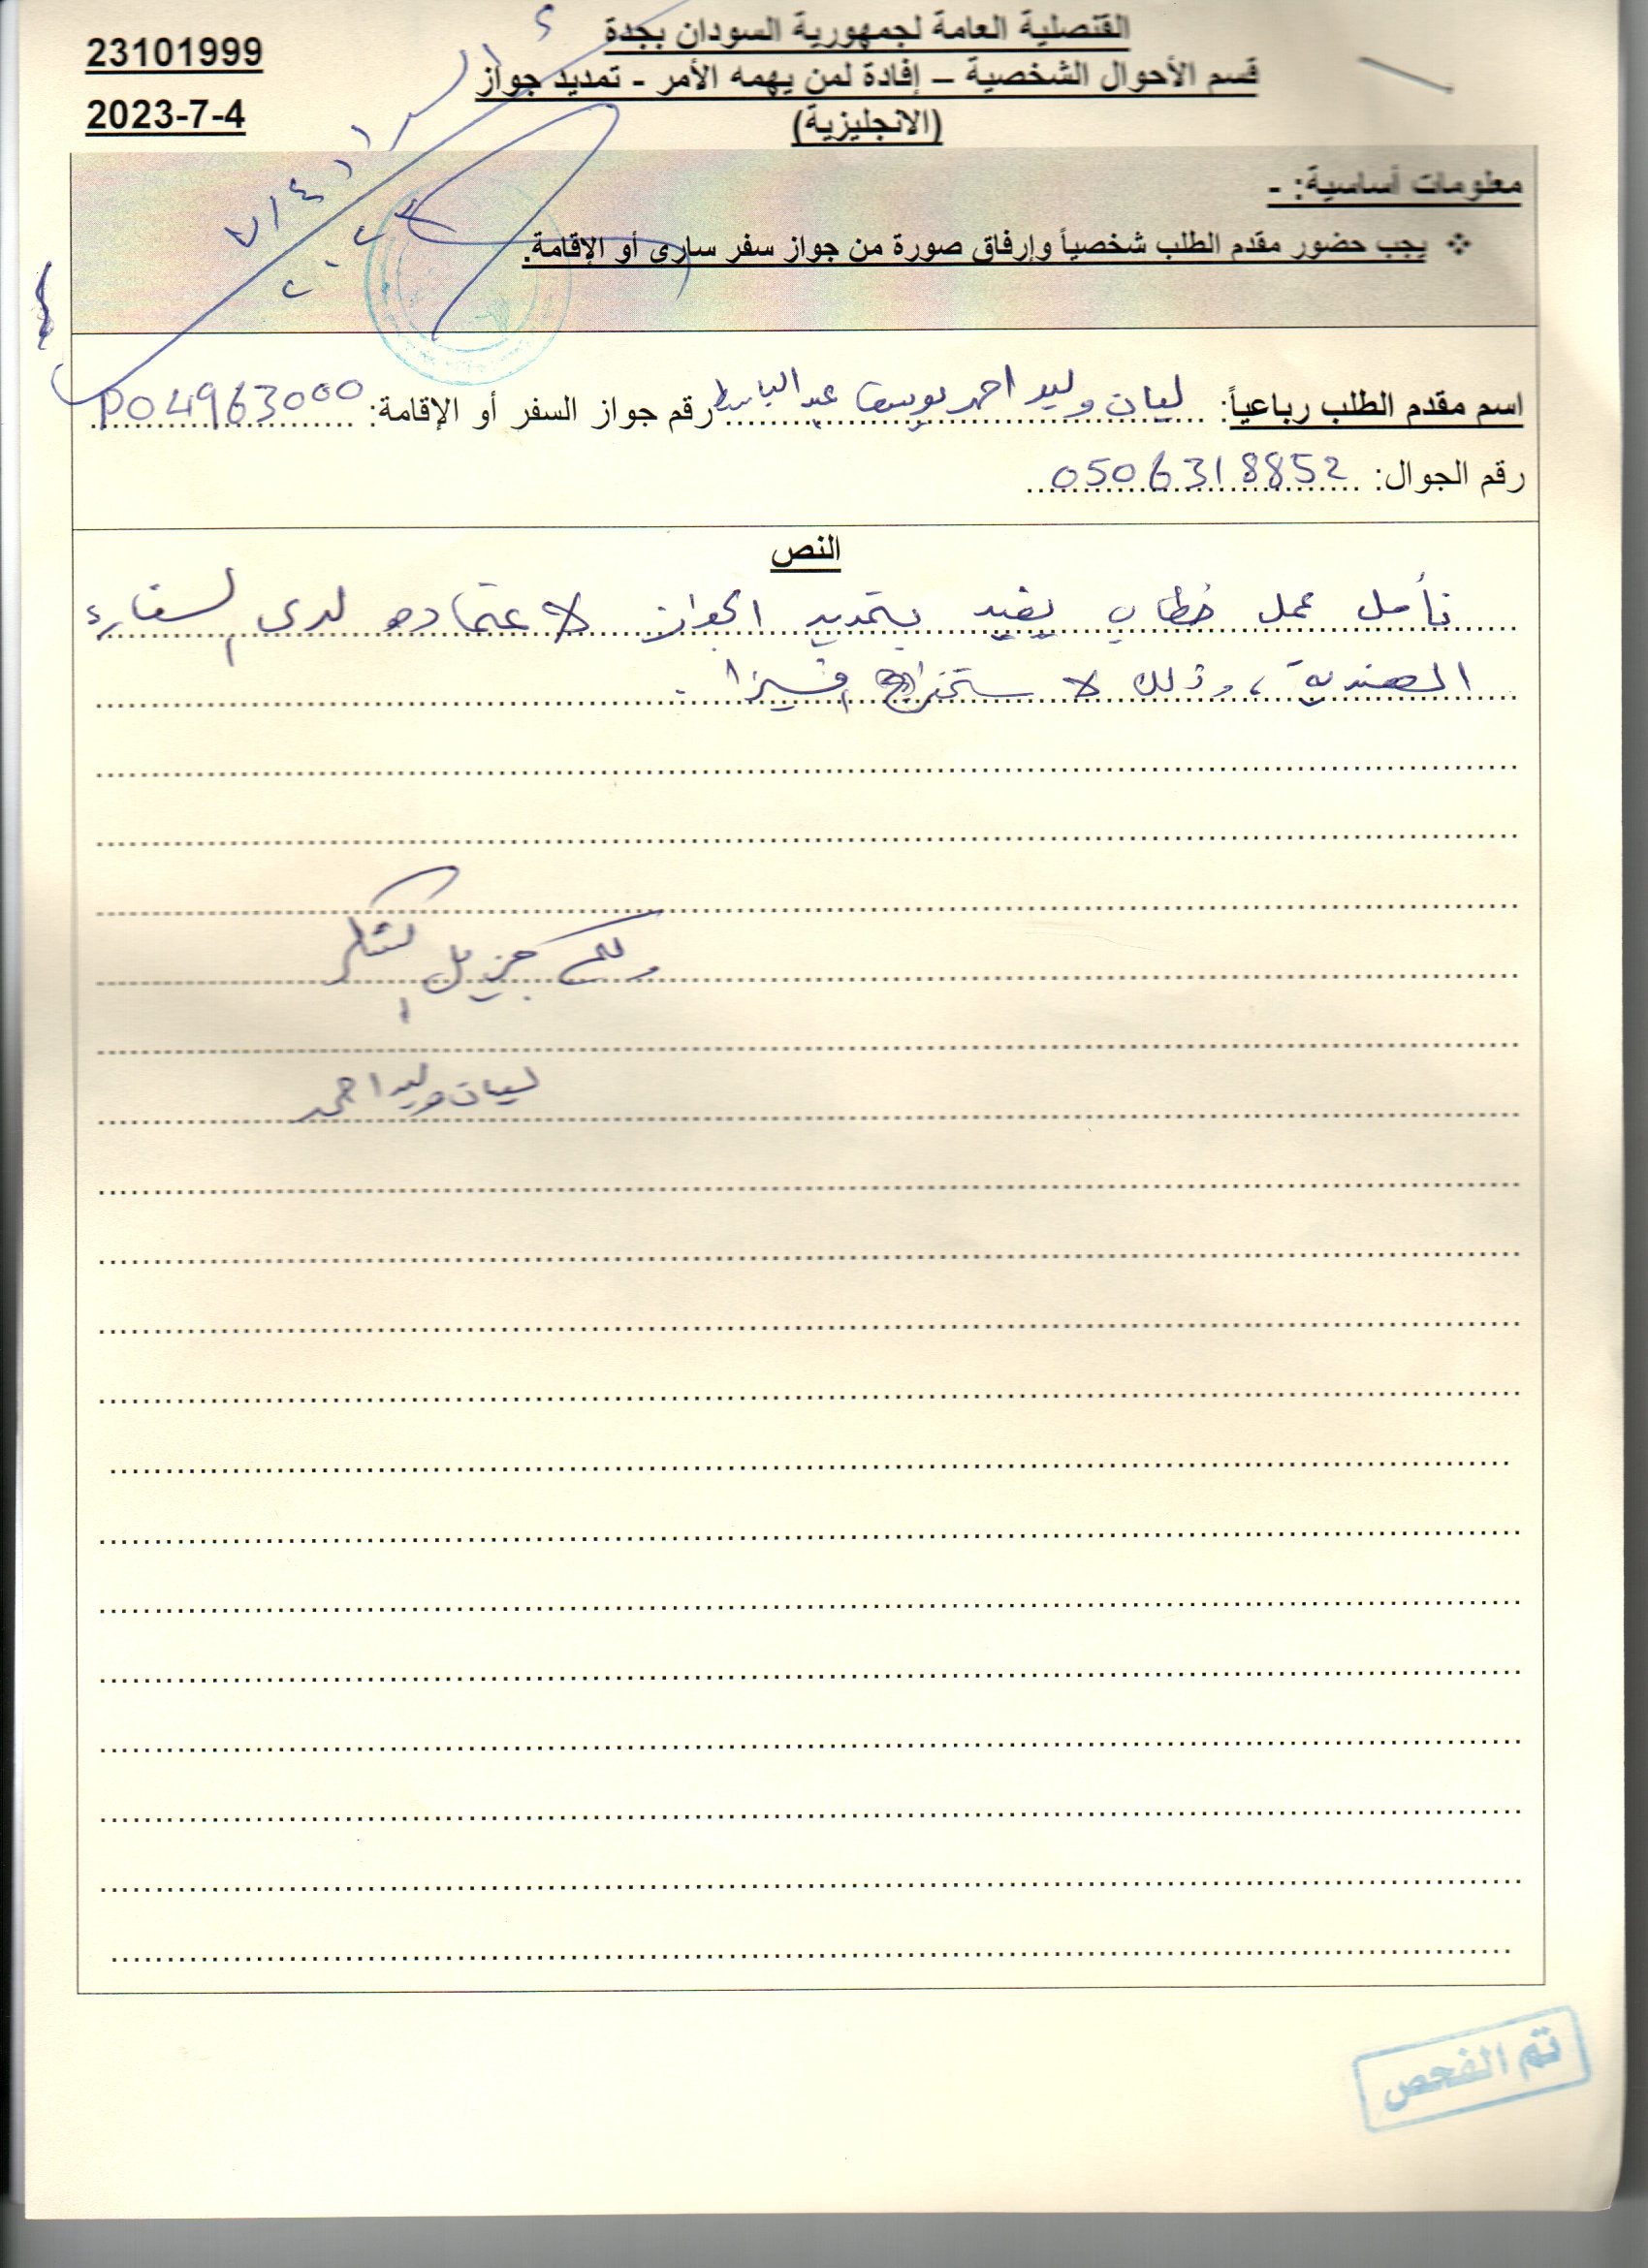 23101999
2023-7-4
القنصلية العامة لجمهورية السودان بجدة
قسم الأحوال الشخصية – إفادة لمن يهمه الأمر - تمديد جواز
(الانجليزية)
معلومات أساسية: -
❖ يجب حضور مقدم الطلب شخصياً وإرفاق صورة من جواز سفر سارى أو الإقامة.
اسم مقدم الطلب رباعياً: ليان وليد احمد يوسف عبد الباسط رقم جواز السفر أو الإقامة: P04963000
رقم الجوال: 0506318852
النص
نأمل عمل خطاب يفيد بتمديد الجواز لاعتماده لدى السفارة
الهندية، وذلك لاستخراج فيزا.
ولكم جزيل الشكر
ليان وليد احمد
تم الفحص